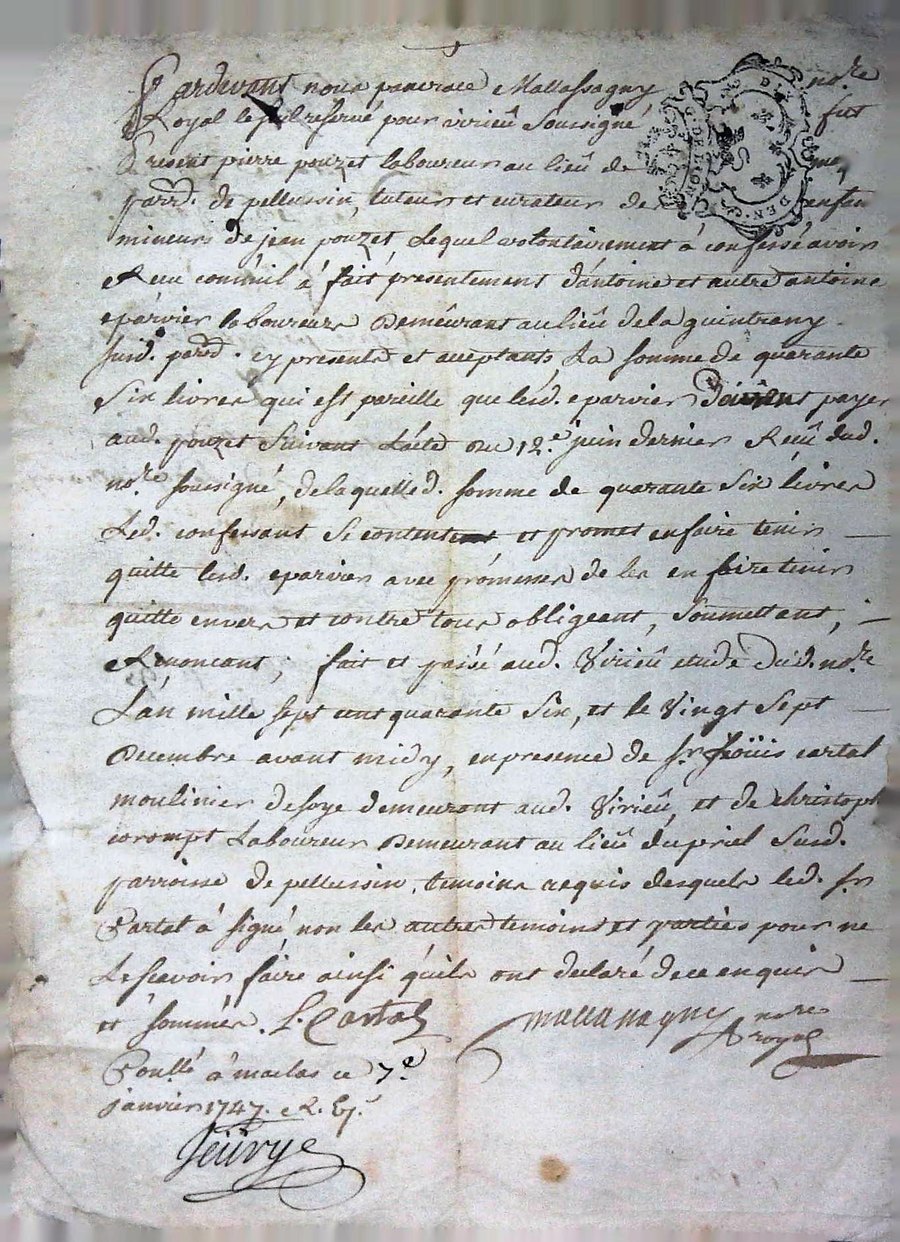 Pardevant nous pancrace Mallassagny no.re
Royal le seul reservé pour virieü soussigné fut
present pierre pouzet laboureur au lieü de
parr.d de pellussin, tuteur et curateur de enfan
mineurs de jean pouzet lequel volontairement à confessé avoir
Receu comm'il à fait présentement d'antoine et autre antoine
eparvier laboureurs Demeurant au lieü de la quintrany
susd. parr.d. cy presents et acceptants, La somme de quarante
six livres qui est pareille que lesd. eparvier payer
aud. pouzet suivant l'acte du 12.e juin dernier Receü dud.
no.re soussigné, de laquelle d. somme de quarante six livres
Led. confessant se content et promet en faire tenir
quitte lesd. eparvier avec promesse de les en faire tenir
quitte envers et contre tous obligeant, soumettant,
Renoncant; fait et passé aud. Virieü etude dud. no.re
L'an mille sept cent quarante six, et le vingt sept
Decembre avant midy, en presence de s.r Loüis cartal
moulinier de soye demeurant aud. Virieü, et de christoph
corompt Laboureur Demeurant au lieü dupriel susd.
parroisse de pellussin, temoins requis desquels led. s.r
Cartal à signé non les autres temoins et parties pour ne
Le scavoir faire ainsi qu'ils ont declaré de ce enquis
et sommés. L. Cartal mallassagny no.re
royal
Con.llé à maclas ce 7.e
janvier 1747. R.